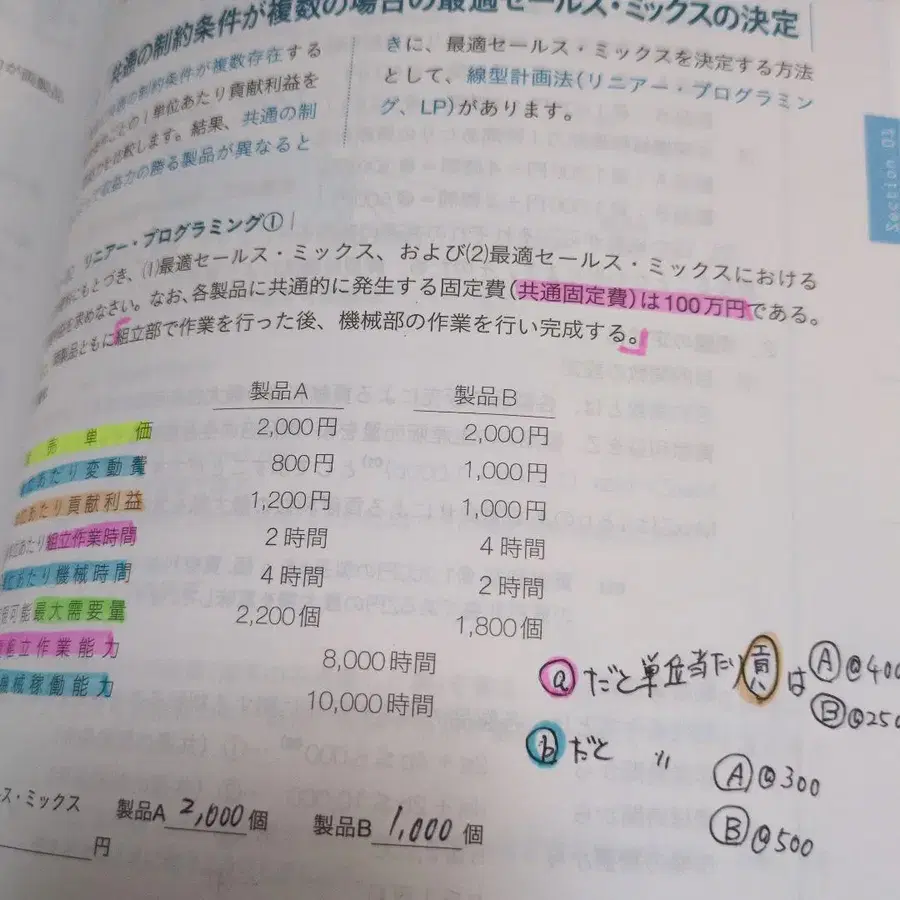 共通の制約条件が複数の場合の最適セールス・ミックスの決定
共通の制約条件が複数存在する
ごとの1単位あたり貢献利益を
を比較します。結果、共通の制
収益力の勝る製品が異なると
きに、最適セールス・ミックスを決定する方法
として、線型計画法(リニアー・プログラミン
グ、LP)があります。
Section 03
リニアー・プログラミング①
にもとづき、(1)最適セールス・ミックス、および(2)最適セールス・ミックスにおける
を求めなさい。なお、各製品に共通的に発生する固定費(共通固定費)は100万円である。
両製品ともに「組立部で作業を行った後、機械部の作業を行い完成する。」
製品A 製品B
売単価 2,000円 2,000円
あたり変動費 800円 1,000円
あたり貢献利益 1,200円 1,000円
あたり組立作業時間 2時間 4時間
あたり機械時間 4時間 2時間
可能最大需要量 2,200個 1,800個
組立作業能力 8,000時間
機械稼働能力 10,000時間
ⓐだと単位当たり貢はⒶ@400
Ⓑ@250
ⓑだと 〃 Ⓐ@300
Ⓑ@500
ス・ミックス 製品A 2,000個 製品B 1,000個
円